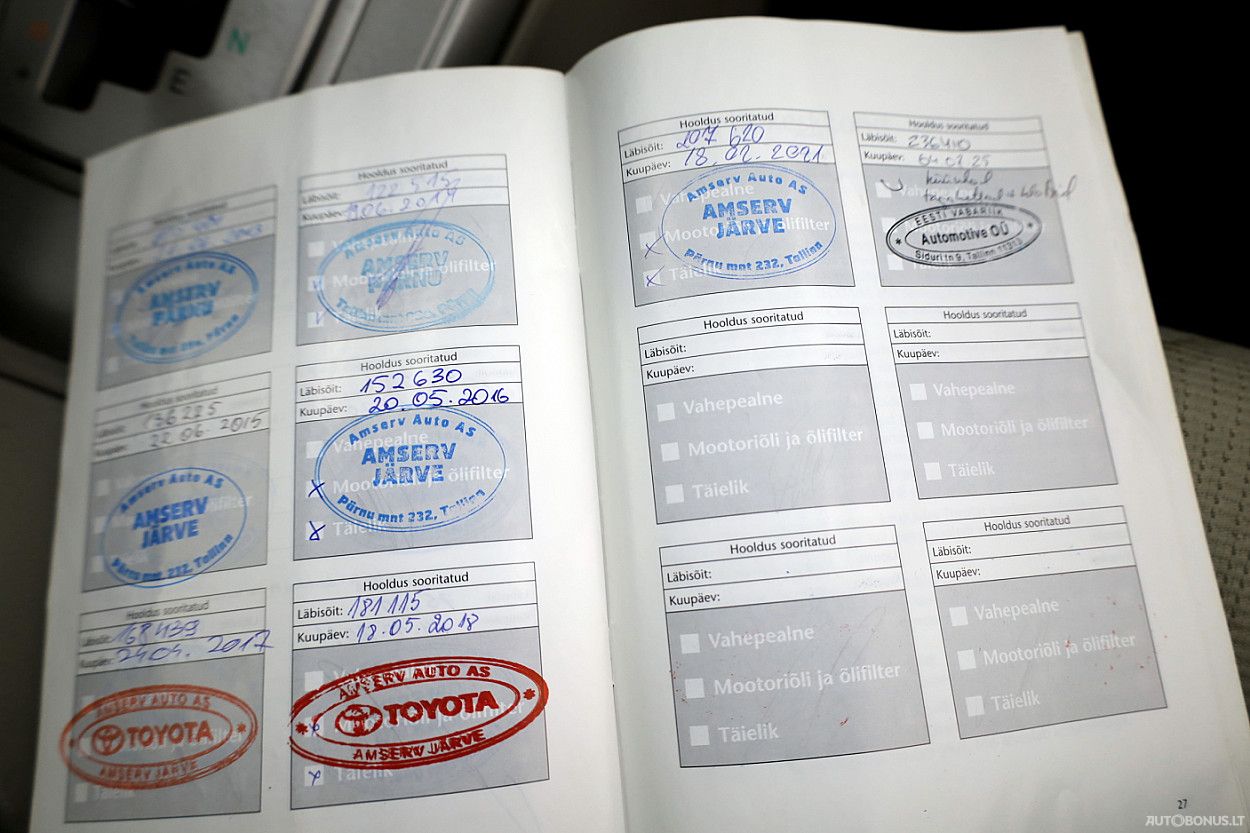 N
E
Hooldus sooritatud
AMSERV
PÄRNU
Hooldus sooritatud
Läbisõit:
Kuupäev:
Amserv Auto AS
AMSERV
PÄRNU
Mootoriõli ja õlifilter
Hooldus sooritatud
Läbisõit: 136225
Kuupäev: 22.06.2015
Amserv Auto AS
AMSERV
JÄRVE
Pärnu mnt 232, Tallinn
Hooldus sooritatud
Läbisõit: 152630
Kuupäev: 20.05.2016
Vahepealne
Amserv Auto AS
AMSERV
JÄRVE
Mootoriõli ja õlifilter
Pärnu mnt 232, Tallinn
X
X Täielik
Hooldus sooritatud
Läbisõit: 168439
Kuupäev: 24.04.2017
AMSERV AUTO AS
TOYOTA
AMSERV JÄRVE
Täielik
Hooldus sooritatud
Läbisõit: 181115
Kuupäev: 18.05.2018
AMSERV AUTO AS
TOYOTA
AMSERV JÄRVE
X
X Täielik
Hooldus sooritatud
Läbisõit: 207 620
Kuupäev: 18.02.2021
Vahepealne
Amserv Auto AS
AMSERV
JÄRVE
X Mootoriõli ja õlifilter
X Täielik
Pärnu mnt 232, Tallinn
Hooldus sooritatud
Läbisõit: 236410
Kuupäev:
Vahepealne
EESTI VABARIIK
Automotive OÜ
Siduri tn 9, Tallinn 11313
Hooldus sooritatud
Läbisõit:
Kuupäev:
Vahepealne
Mootoriõli ja õlifilter
Täielik
Hooldus sooritatud
Läbisõit:
Kuupäev:
Vahepealne
Mootoriõli ja õlifilter
Täielik
Hooldus sooritatud
Läbisõit:
Kuupäev:
Vahepealne
Mootoriõli ja õlifilter
Täielik
Hooldus sooritatud
Läbisõit:
Kuupäev:
Vahepealne
Mootoriõli ja õlifilter
Täielik
27
AUTOBONUS.LT